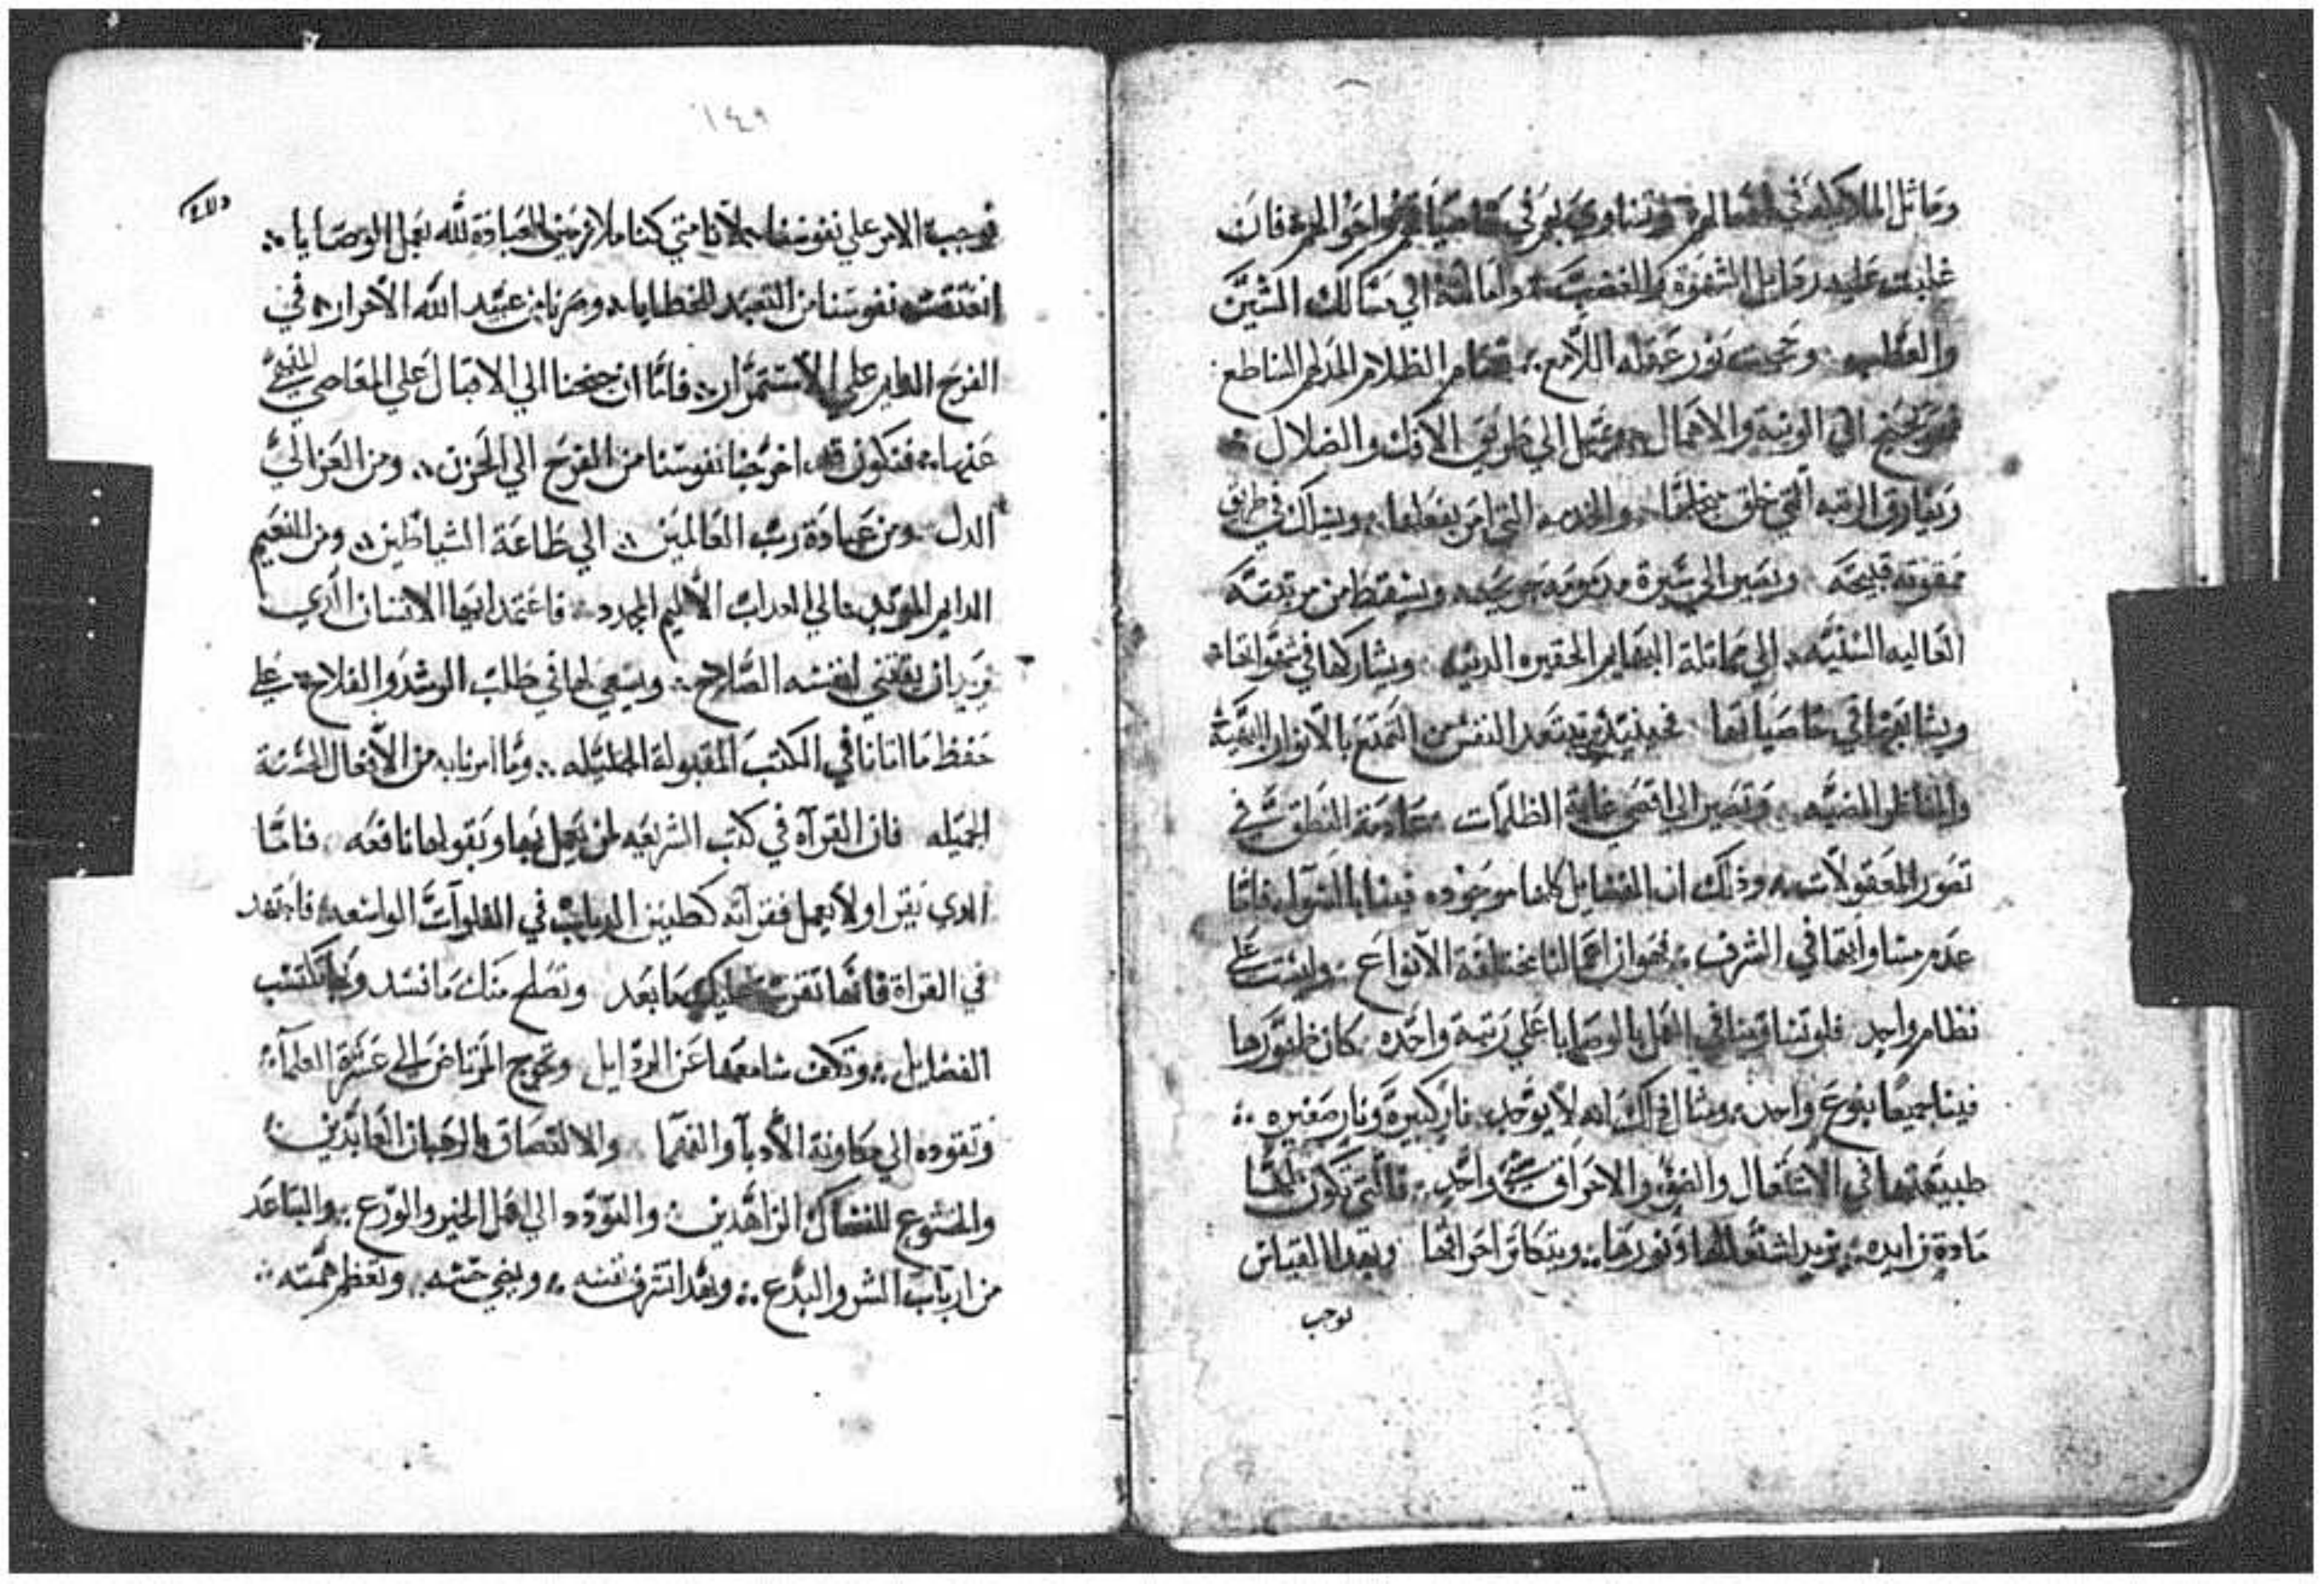 وماثل الملائكة في افعالهم وتساوي بهم في فان
غلبت عليه رذايل الشهوة والغضب وامالته الي مسالك الشين
والعطب وحجبت نور عقله اللامع الظلام المدلهم الساطع
الي الونية والاهمال ويميل الي طريق الافك والضلال
ويفارق الرتبه التي خلق والخدمه التي امر بفعلها ويسلك في طرايق
ممقوته قبيحة ويصير الي سيرة مذمومه ويسقط من مرتبته
العاليه السنيه الي مماثلة البهايم الحقيره الدنيه ويشاركها في شهواتها
ويشابهها في خاصياتها فحينيذ يبتعد النفس من التمتع بالانوار البهية
والمناظر المضيه وتصير الي اقصي غاية الظلمات عادمة النطق في
تصور المعقولات وذلك ان الفضايل كلها موجوده فينا بالسوآ فاما
عدم مساواتها في الشرف فهو ان اعمالنا مختلفة الانواع وليست علي
نظام واحد فلو تساوينا في العمل بالوصايا علي رتبة واحده كان ظهورها
فينا جميعا بنوع واحد ومثال ذلك انه لا يوجد نار كبيرة ونار صغيره
طبيعتها في الاشتعال والضو والاحراق واحد فالتي تكون لها
مادة زايده يزيد اشتعالها ونورها ويتكاثر احراقها وبهدا القياس
نوجب
١٤٩
نوجب الامر علي نفوسنا لاننا متي كنا ملازمين العبادة لله بعمل الوصايا
انعتقت نفوسنا من التعبد للخطايا وصرنا من عبيد الله الاحرار في
الفرح الدايم علي الاستمرار فاما ان جنحنا الي الاقبال علي المعاصي المنهي
عنها فنكون قد اخرجنا نفوسنا من الفرح الي الحزن ومن العز الي
الدل ومن عبادة رب العالمين الي طاعة الشياطين ومن النعيم
الدايم الموبد الي العداب الاليم المجدد فاعتمد ايها الانسان الدي
يريد ان يقتني لنفسه الصلاح ويسعي لها في طلب الرشد والفلاح علي
حفظ ما اتانا في الكتب المقبولة الجليله وما امرنا به من الافعال الحسنة
الجميله فان القرآة في كتب الشريعه لمن يعمل بها ويقولها نافعه فاما
الدي يقرا ولا يعمل فقرآته كطنين الدباب في الفلوات الواسعه فاجتهد
في القراة فانها تقرب اليك ما بعد وتصلح منك ما فسد وبها تكتسب
الفضايل وتكف سامعها عن الردايل وتحرج المرتاض الي عشرة العلمآ
وتقوده الي مكاونة الأدبآ والفهما والالتصاق بالرهبان العابدين
والخشوع للنساك الزاهدين والتودد الي اهل الخير والورع والتباعد
من ارباب الشر والبدع وبهدا تشرف نفسه ويضي حسه وتعظم همته